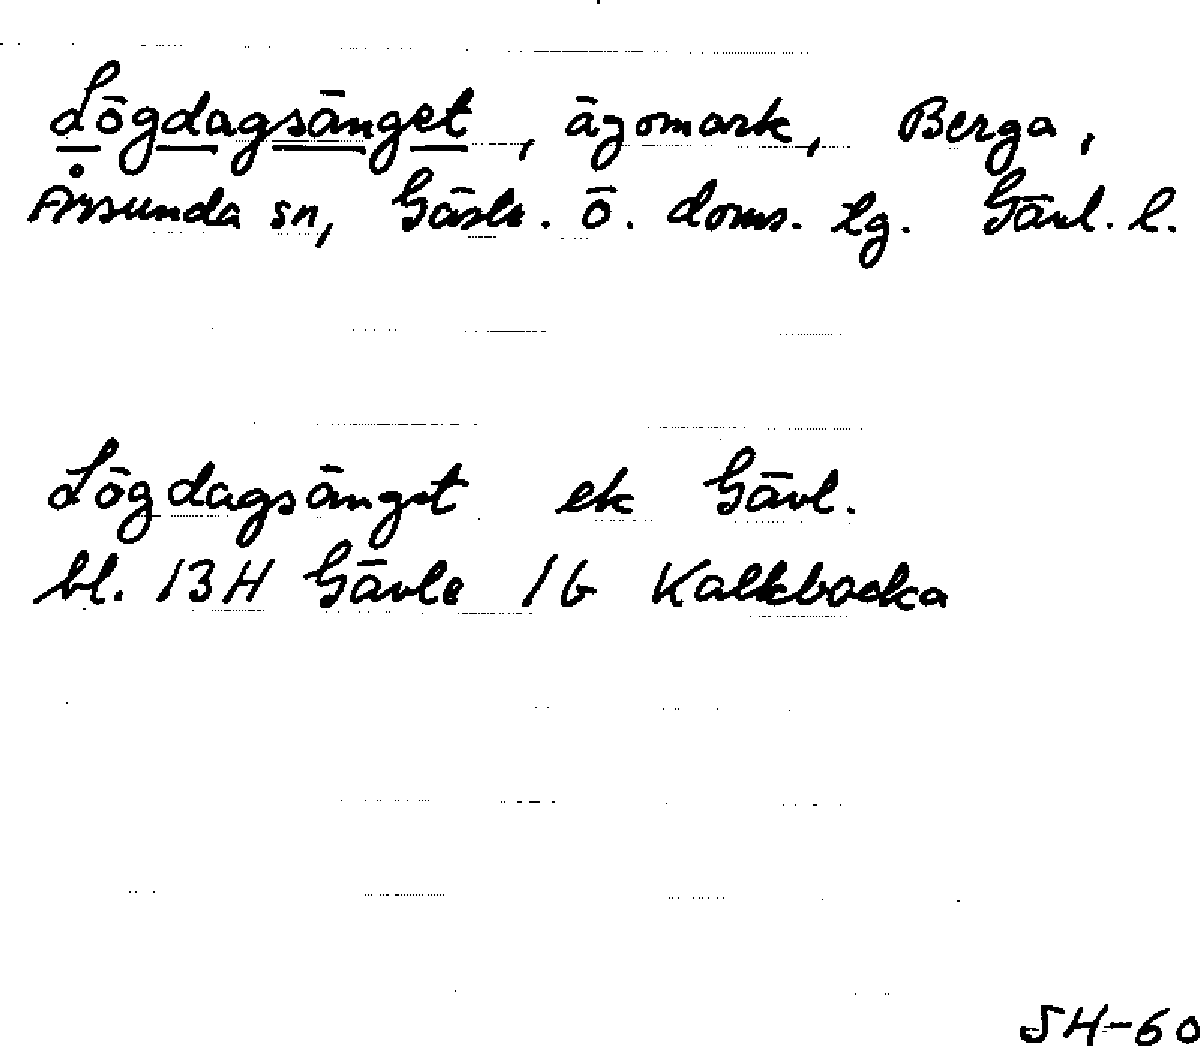 Lögdagsänget, ägomark, Berga,
Årsunda sn, Gästr. ö. doms. tg. Gävl. l.
Lögdagsänget ek Gävl.
bl. 13H Gävle 1b Kalkbacka
54-60